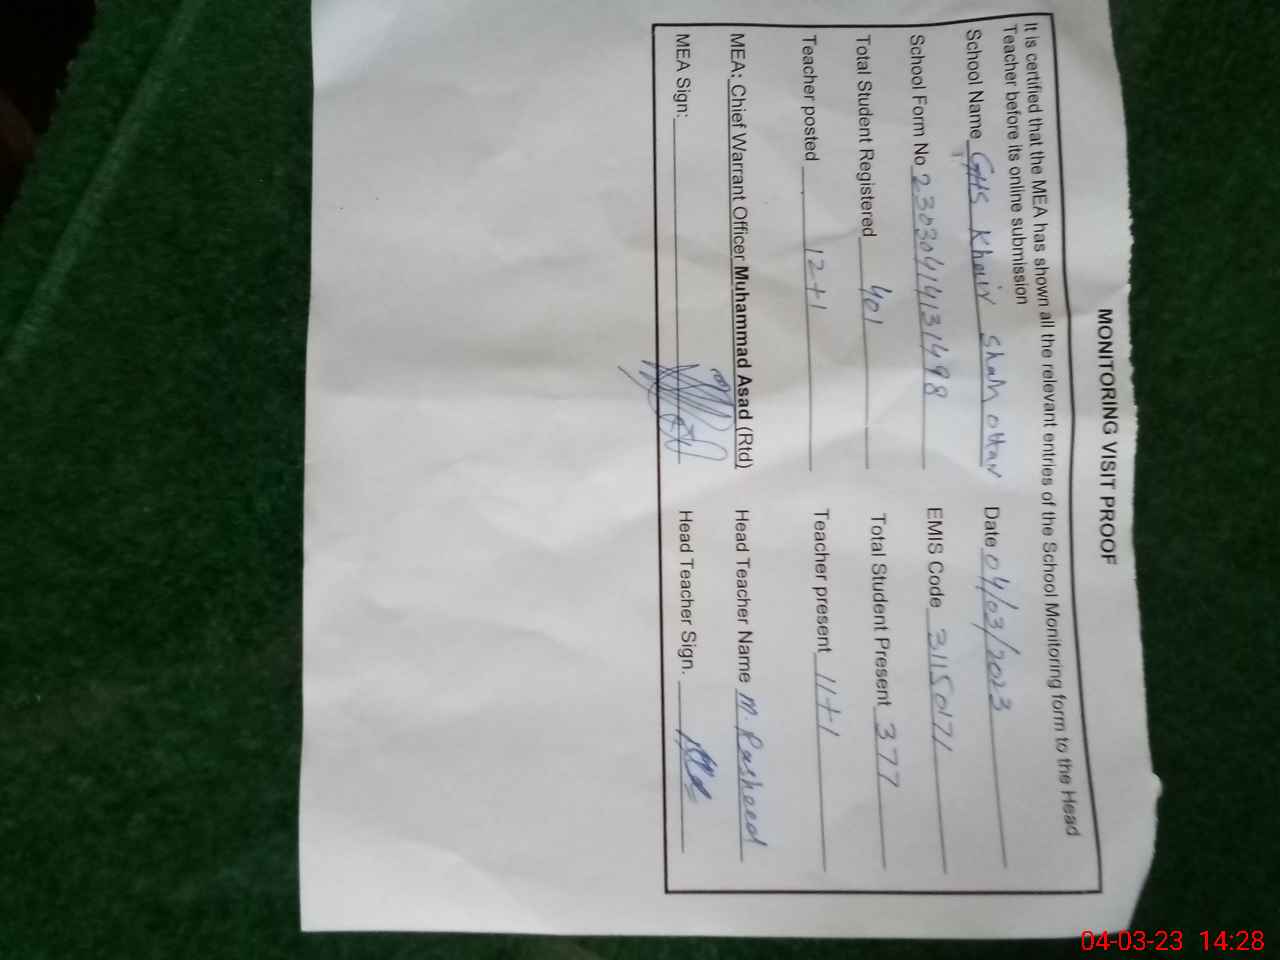 MONITORING VISIT PROOF
It is certified that the MEA has shown all the relevant entries of the School Monitoring form to the Head
Teacher before its online submission
School Name GHS Khair Shah ottar Date 04/03/2023
School Form No 2303041413 1498 EMIS Code 31150171
Total Student Registered 401 Total Student Present 377
Teacher posted 12+1 Teacher present 11+1
MEA: Chief Warrant Officer Muhammad Asad (Rtd) Head Teacher Name M. Rasheed
MEA Sign: Head Teacher Sign.
04-03-23 14:28